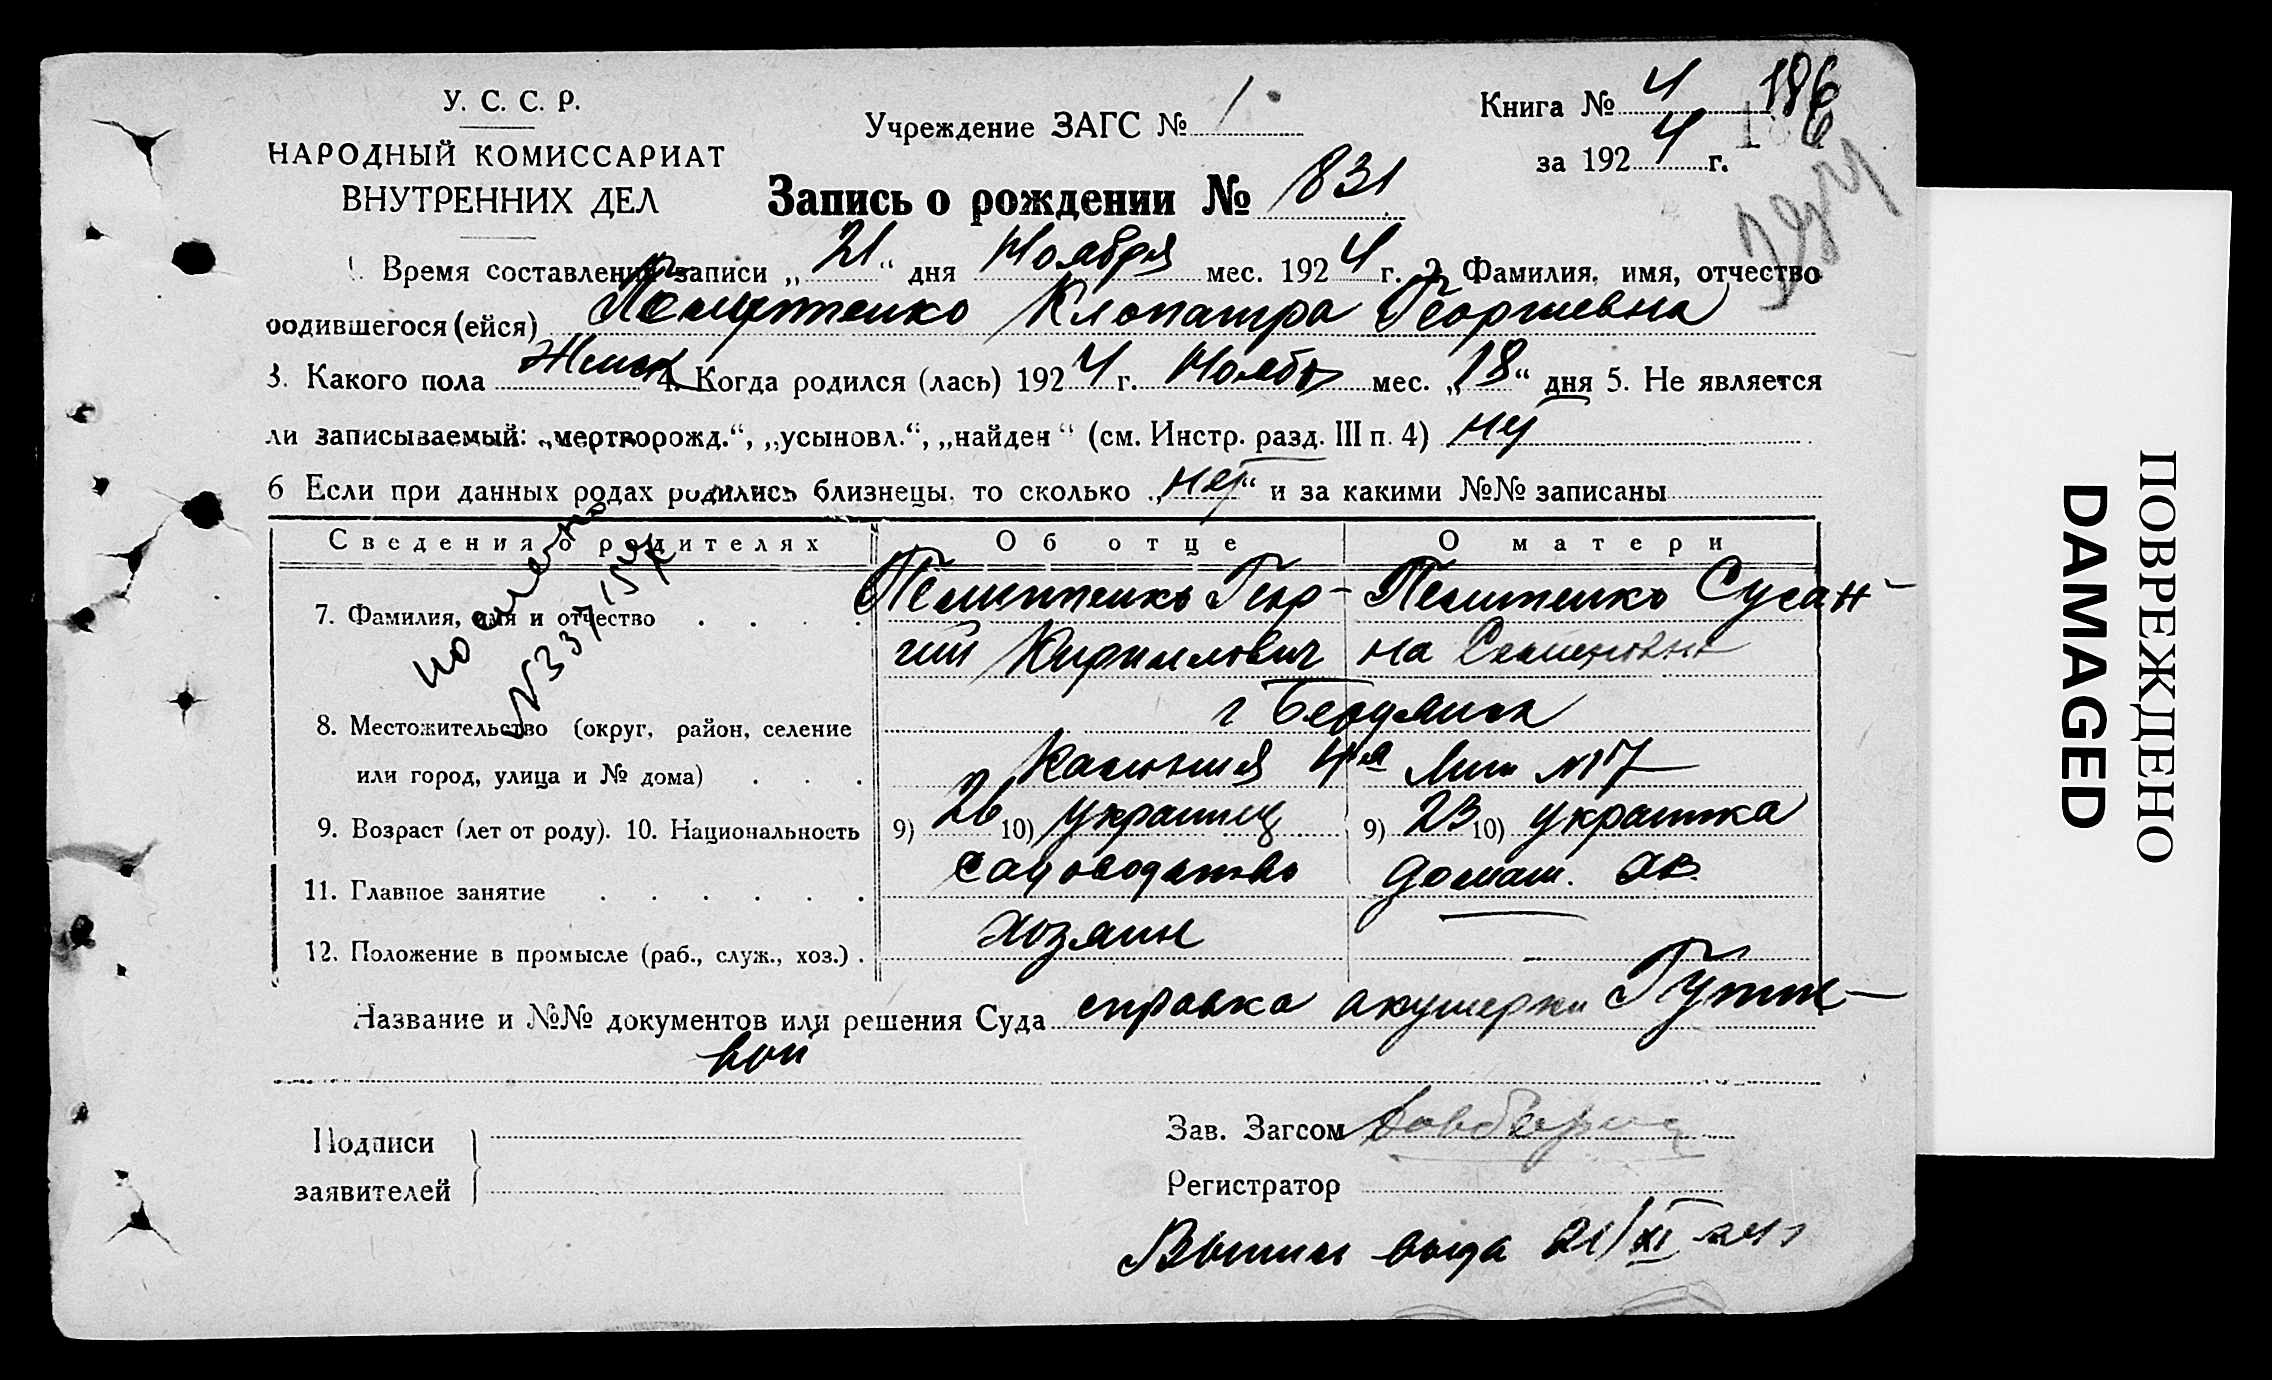 У. С. С. Р.
НАРОДНЫЙ КОМИССАРИАТ
ВНУТРЕННИХ ДЕЛ
Учреждение ЗАГС № 1
Книга № 4 186
за 1924 г. 186
Запись о рождении № 831
1. Время составления записи „21“ дня Ноября мес. 1924 г. 2. Фамилия, имя, отчество
родившегося (ейся) Клопатра Георгиевна
3. Какого пола Женск 4. Когда родился (лась) 1924 г. Ноября мес. „18“ дня 5. Не является
ли записываемый: „мертворожд.“, „усыновл.“, „найден“ (см. Инстр. разд. III п. 4) нет
6 Если при данных родах родились близнецы, то сколько „нет“ и за какими №№ записаны
Сведения о родителях Об отце О матери
7. Фамилия, имя и отчество Геор-гий Кириллович Сусан-на Семеновна
8. Местожительство (округ, район, селение г Бердянск
или город, улица и № дома) 4я Лин №17
9. Возраст (лет от роду). 10. Национальность 9) 26 10) украинец 9) 23 10) украинка
11. Главное занятие садоводство домаш. хоз.
12. Положение в промысле (раб., служ., хоз.) хозяин —
Название и №№ документов или решения Суда справка акушерки
вой
Подписи
заявителей
Зав. Загсом
Регистратор
Выпись выда 21/XI 24 г
ПОВРЕЖДЕНО
DAMAGED